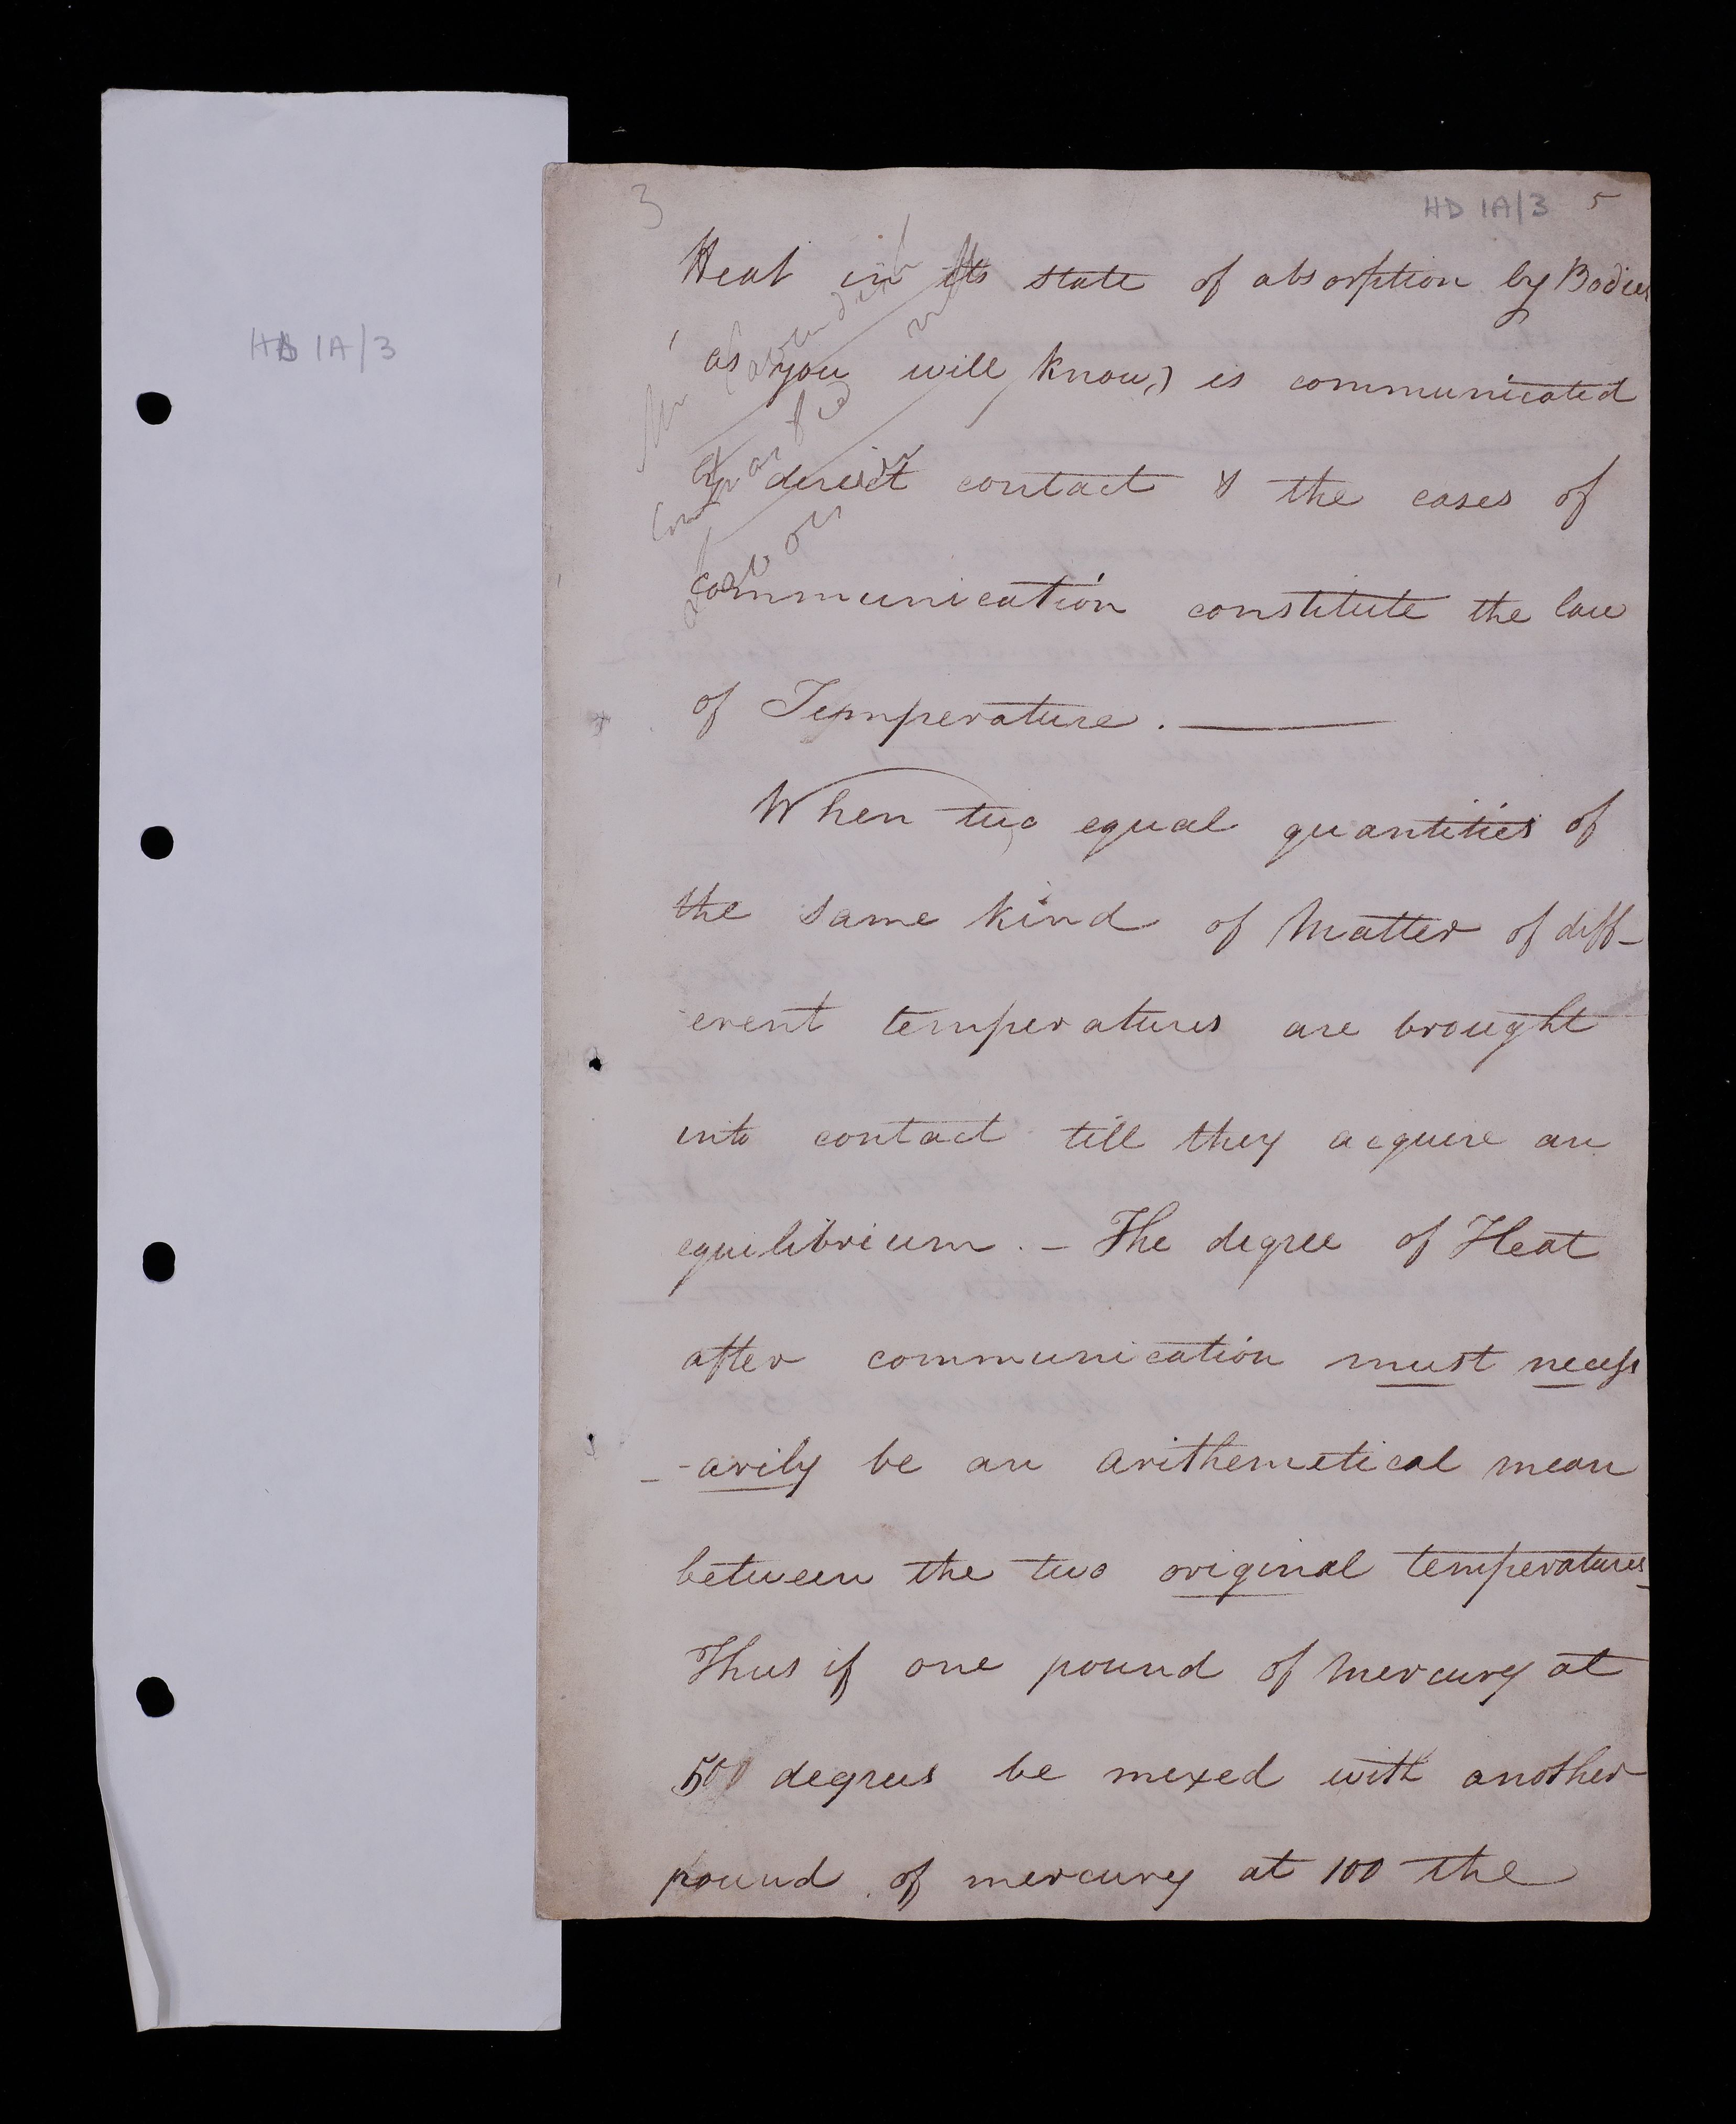 HD 1A/3
3
HD 1A/3 5
Heat in its state of absorption by Bodies
as you will know,) is communicated
by direct contact & the cases of
communication constitute the law
of Temperature. —
When two equal quantities of
the same kind of Matter of diff-
erent temperatures are brought
into contact till they acquire an
equilibrium. - The degree of Heat
after communication must necess
-arily be an arithemetical mean
between the two original temperatures
Thus if one pound of Mercury at
500 degrees be mixed with another
pound of mercury at 100 the